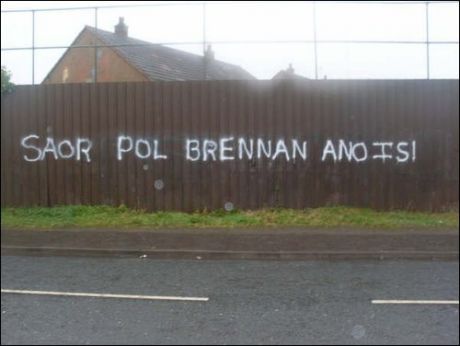 SAOR POL BRENNAN ANOIS!